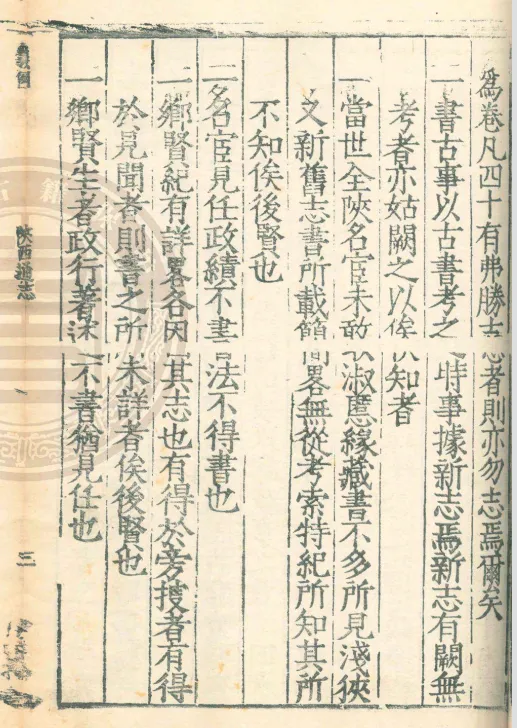 爲卷凡四十有弗勝志者則亦勿志焉爾矣
一書古事以古書考之時事據新志焉新志有闕無
考者亦姑闕之以俟知者
一當世全陝名宦未敢淑慝緣藏書不多所見淺狹
又新舊志書所載簡畧無從考索特紀所知其所
不知俟後賢也
一名宦見任政績不書法不得書也
一鄉賢紀有詳畧各因其志也有得於旁搜者有得
於見聞者則書之所未詳者俟後賢也
一鄉賢生者政行著不書猶見任也
陝西通志
三